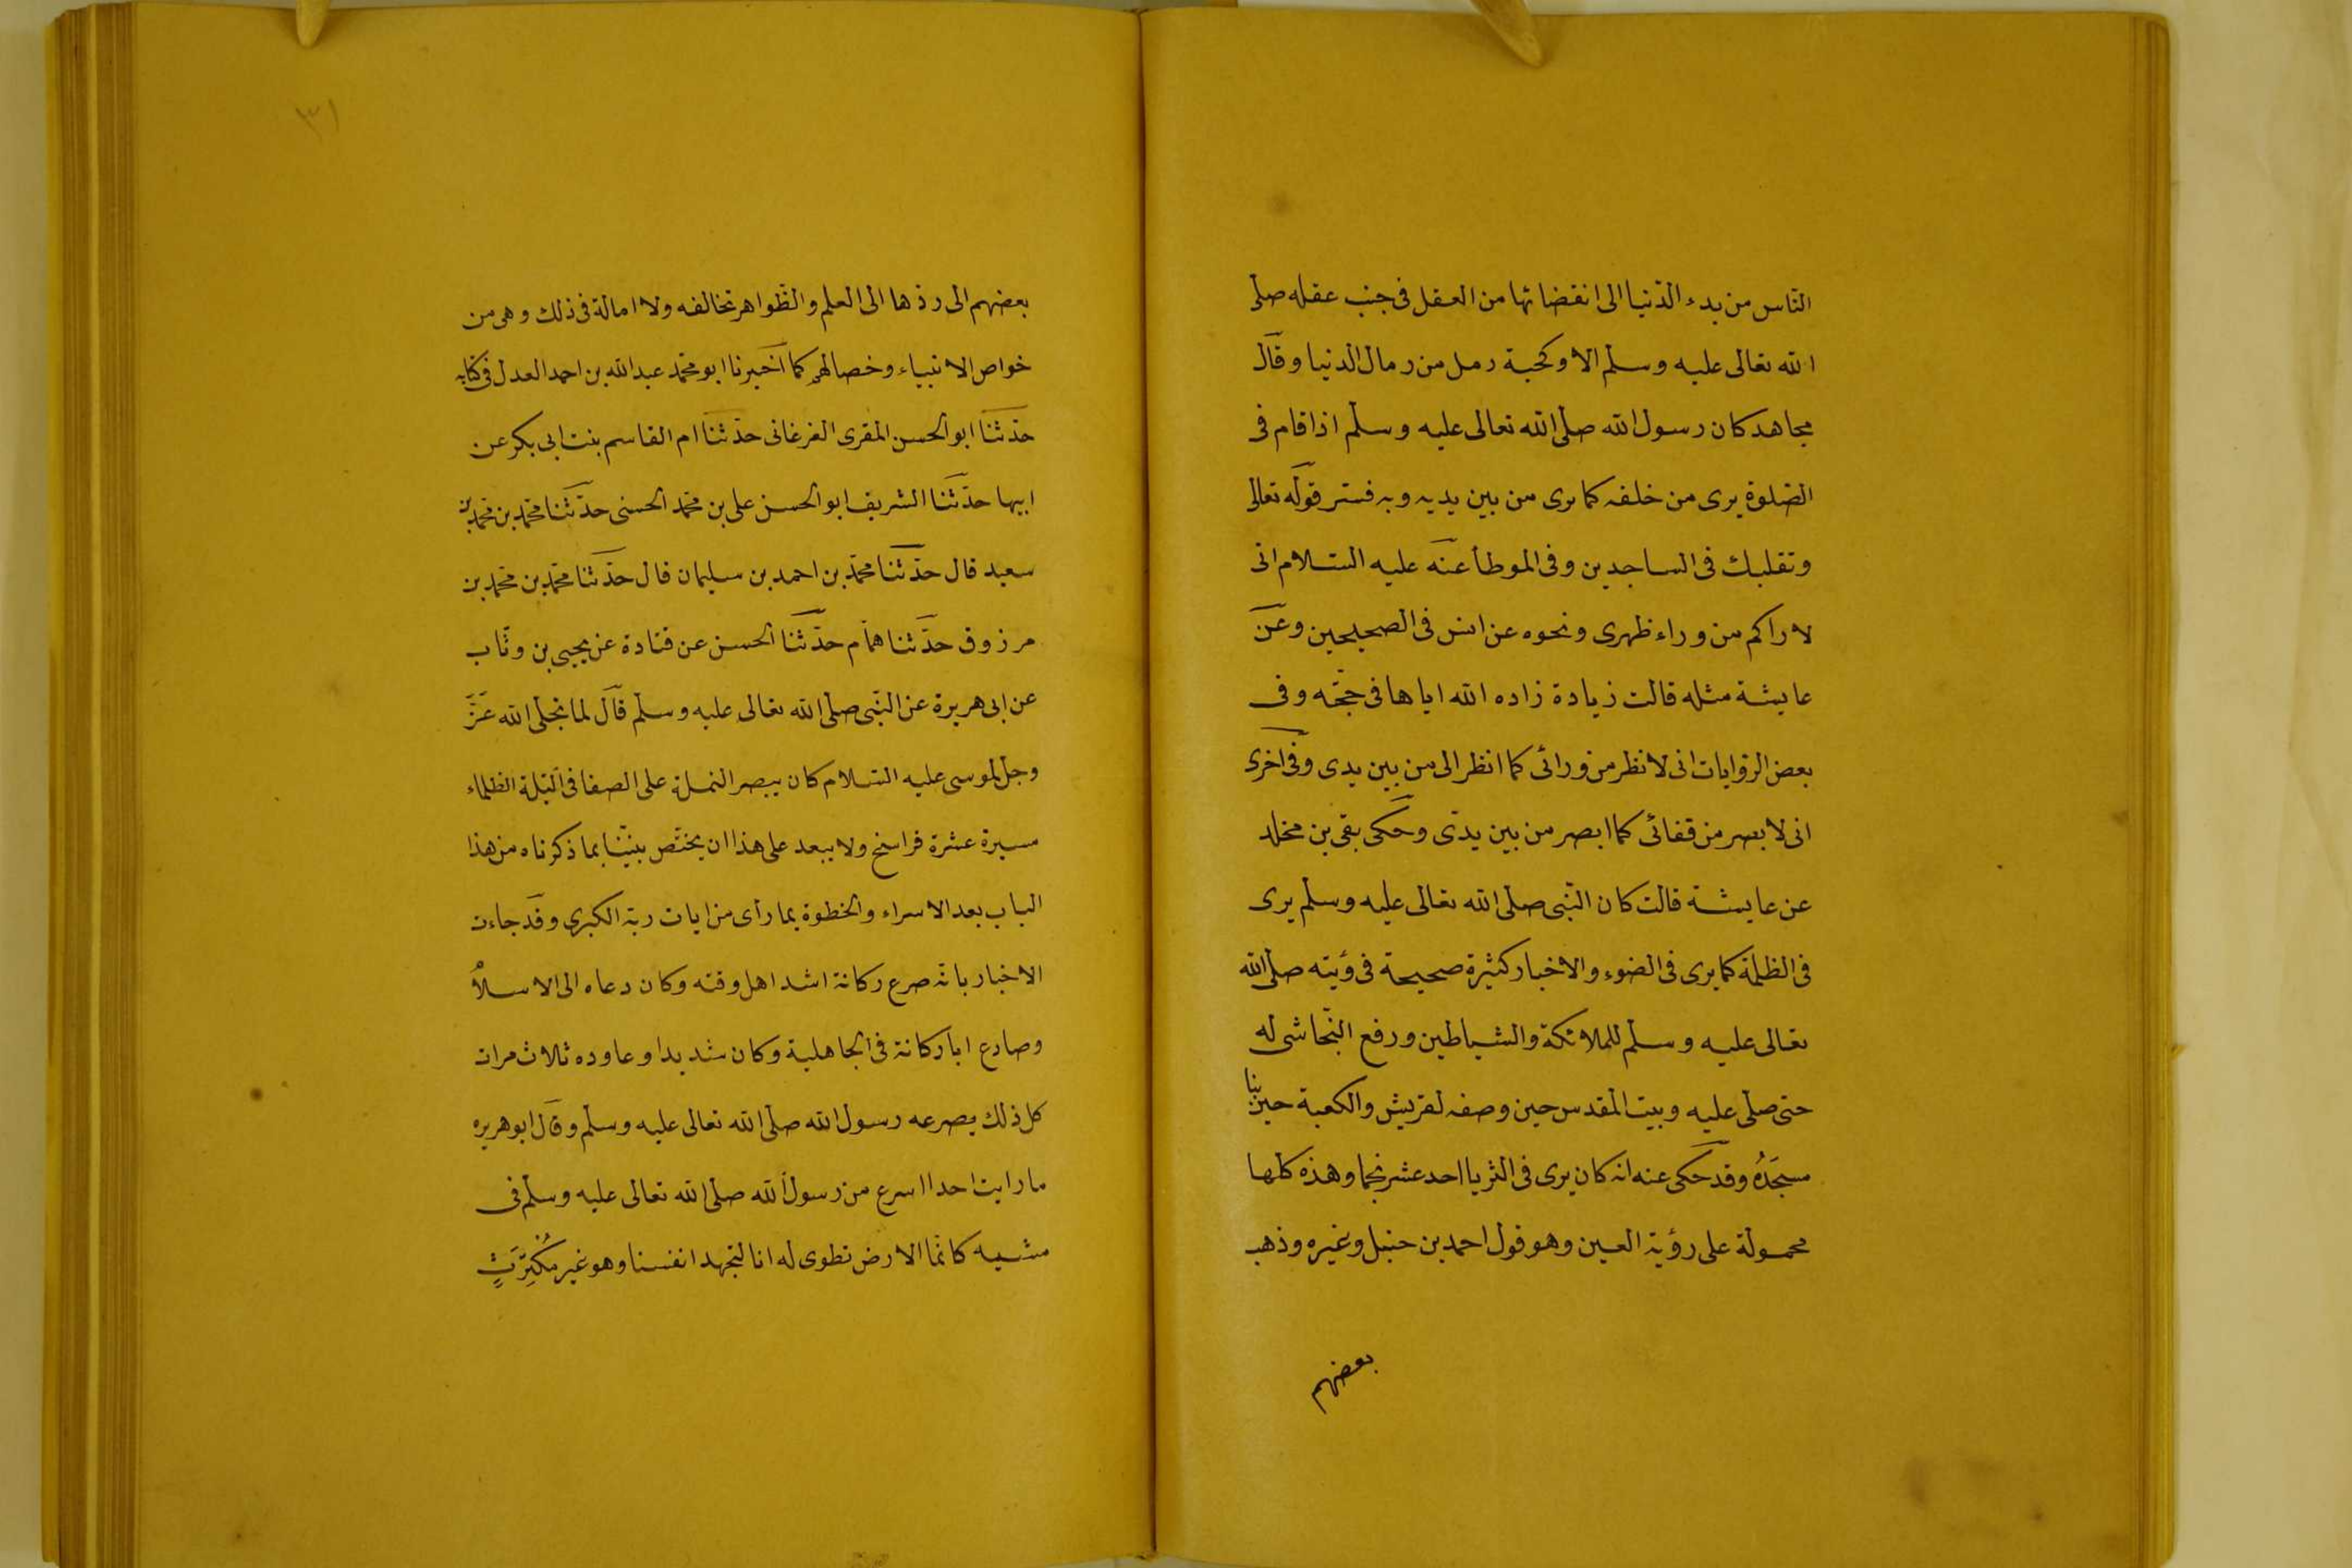 الناس من بدء الدنيا الى انقضائها من العقل فى جنب عقله صلى
الله تعالى عليه وسلم الا وكحبة رمل من رمال الدنيا وقال
مجاهد كان رسول الله صلى الله تعالى عليه وسلم اذا قام فى
الصلوة يرى من خلفه كما يرى من بين يديه وبه فسر قوله تعالى
وتقلبك فى الساجدين وفى الموطأ عنه عليه السلام انى
لاراكم من وراء ظهرى ونحوه عن انس فى الصحيحين وعن
عايشة مثله قالت زيادة زاده الله اياها فى حجته وفى
بعض الروايات انى لانظر من ورائى كما انظر الى من بين يدى وفى اخرى
انى لابصر من قفائى كما ابصر من بين يدى وحكى بقى بن مخلد
عن عايشة قالت كان النبى صلى الله تعالى عليه وسلم يرى
فى الظلمة كما يرى فى الضوء والاخبار كثيرة صحيحة فى رؤيته صلى الله
تعالى عليه وسلم للملائكة والشياطين ورفع النجاشى له
حتى صلى عليه وبيت المقدس حين وصفه لقريش والكعبة حين بنا
مسجَدُه وقد حكى عنه انه كان يرى فى الثريا احد عشر نجما وهذه كلها
محمولة على رؤية العين وهو قول احمد بن حنبل وغيره وذهب
بعضهم
٣١
بعضهم الى ردها الى العلم والظواهر تخالفه ولا امالة فى ذلك وهى من
خواص الانبياء وخصالهم كما اخبرنا ابو محمد عبد الله بن احمد العدل فى كتابه
حدثنا ابو الحسن المقرى الفرغانى حدثنا ام القاسم بنت ابى بكر عن
ابيها حدثنا الشريف ابو الحسن على بن محمد الحسنى حدثنا محمد بن محمد بن
سعيد قال حدثنا محمد بن احمد بن سليمان قال حدثنا محمد بن محمد بن
مرزوق حدثنا همام حدثنا الحسن عن قتادة عن يحيى بن وثاب
عن ابى هريرة عن النبى صلى الله تعالى عليه وسلم قال لما تجلى الله عَزَّ
وجل لموسى عليه السلام كان يبصر النملة على الصفا فى الليلة الظلماء
مسيرة عشرة فراسخ ولا يبعد على هذا ان يختص نبينا بما ذكرناه من هذا
الباب بعد الاسراء والخطوة بما رأى من ايات ربه الكبرى وقد جاءت
الاخبار بانه صرع ركانة اشد اهل وقته وكان دعاه الى الاسلام
وصارع ابا ركانة فى الجاهلية وكان شديدا وعاوده ثلاث مرات
كل ذلك يصرعه رسول الله صلى الله تعالى عليه وسلم وقال ابو هريره
ما رايت احدا اسرع من رسول الله صلى الله تعالى عليه وسلم فى
مشيه كانما الارض تطوى له انا لنجهد انفسنا وهو غير مُكْتِرَثٍ